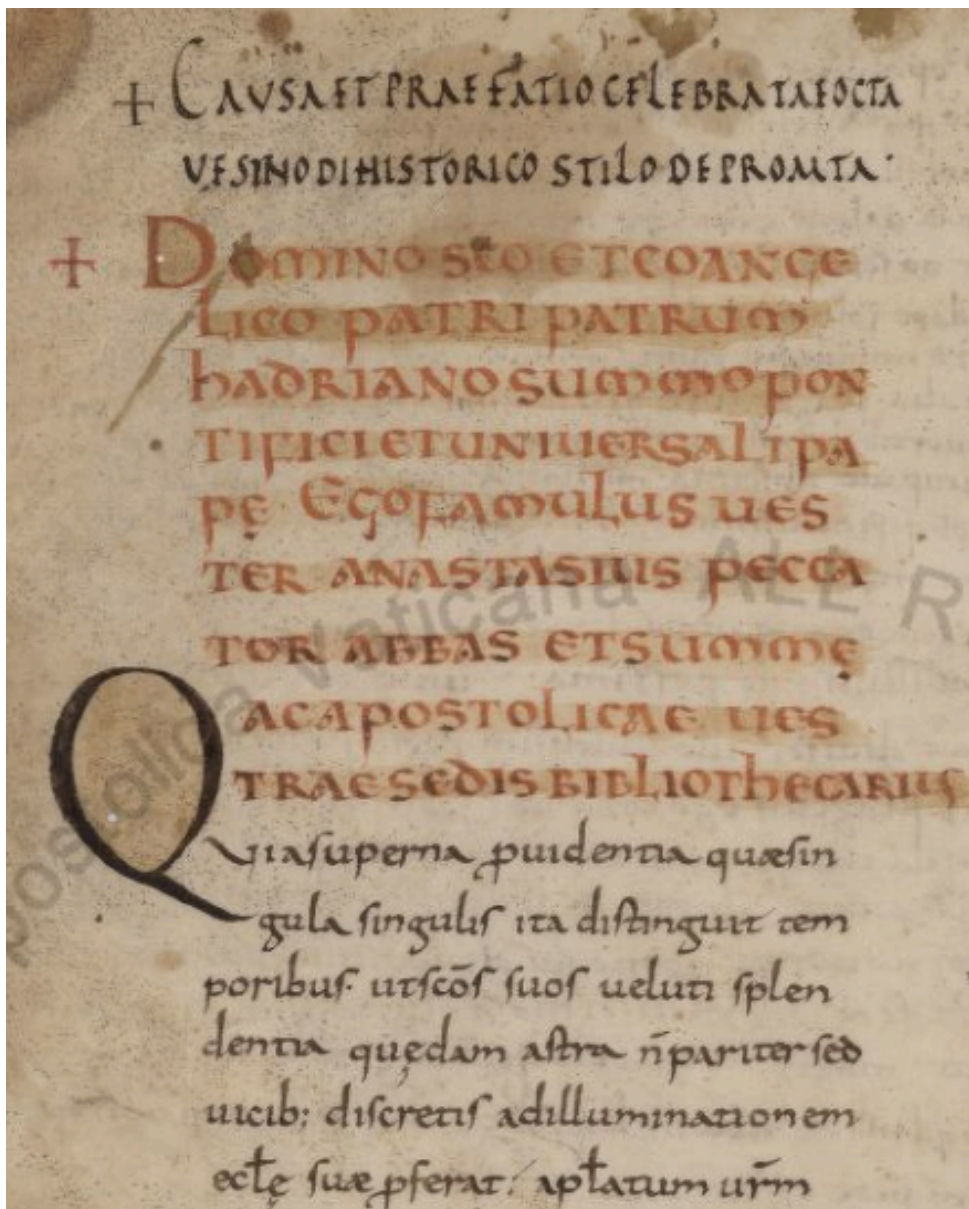 + CAUSA ET PRAEFATIO CELEBRATAE OCTA
VE SINODI HISTORICO STILO DEPROMTA·
+ DOMINO SCO ET COANGE
LICO PATRI PATRUM
hADRIANO SUMMO PON
TIFICI ET UNIVERSALI PA
PĘ EGO FAMULUS UES
TER ANASTASIUS PECCA
TOR ABBAS ET SUMMĘ
AC APOSTOLICAE UES
TRAE SEDIS BIBLIOThECARIUS
QUIA superna ꝓuidentia quæ sin
gula singulis ita distinguit tem
poribus· ut scōs suos ueluti splen
dentia quędam astra n̄ pariter sed
uicib; discretis ad illuminationem
ecłę suæ ꝓferat· apłatum ur̄m
ALL R
postolica Vaticana